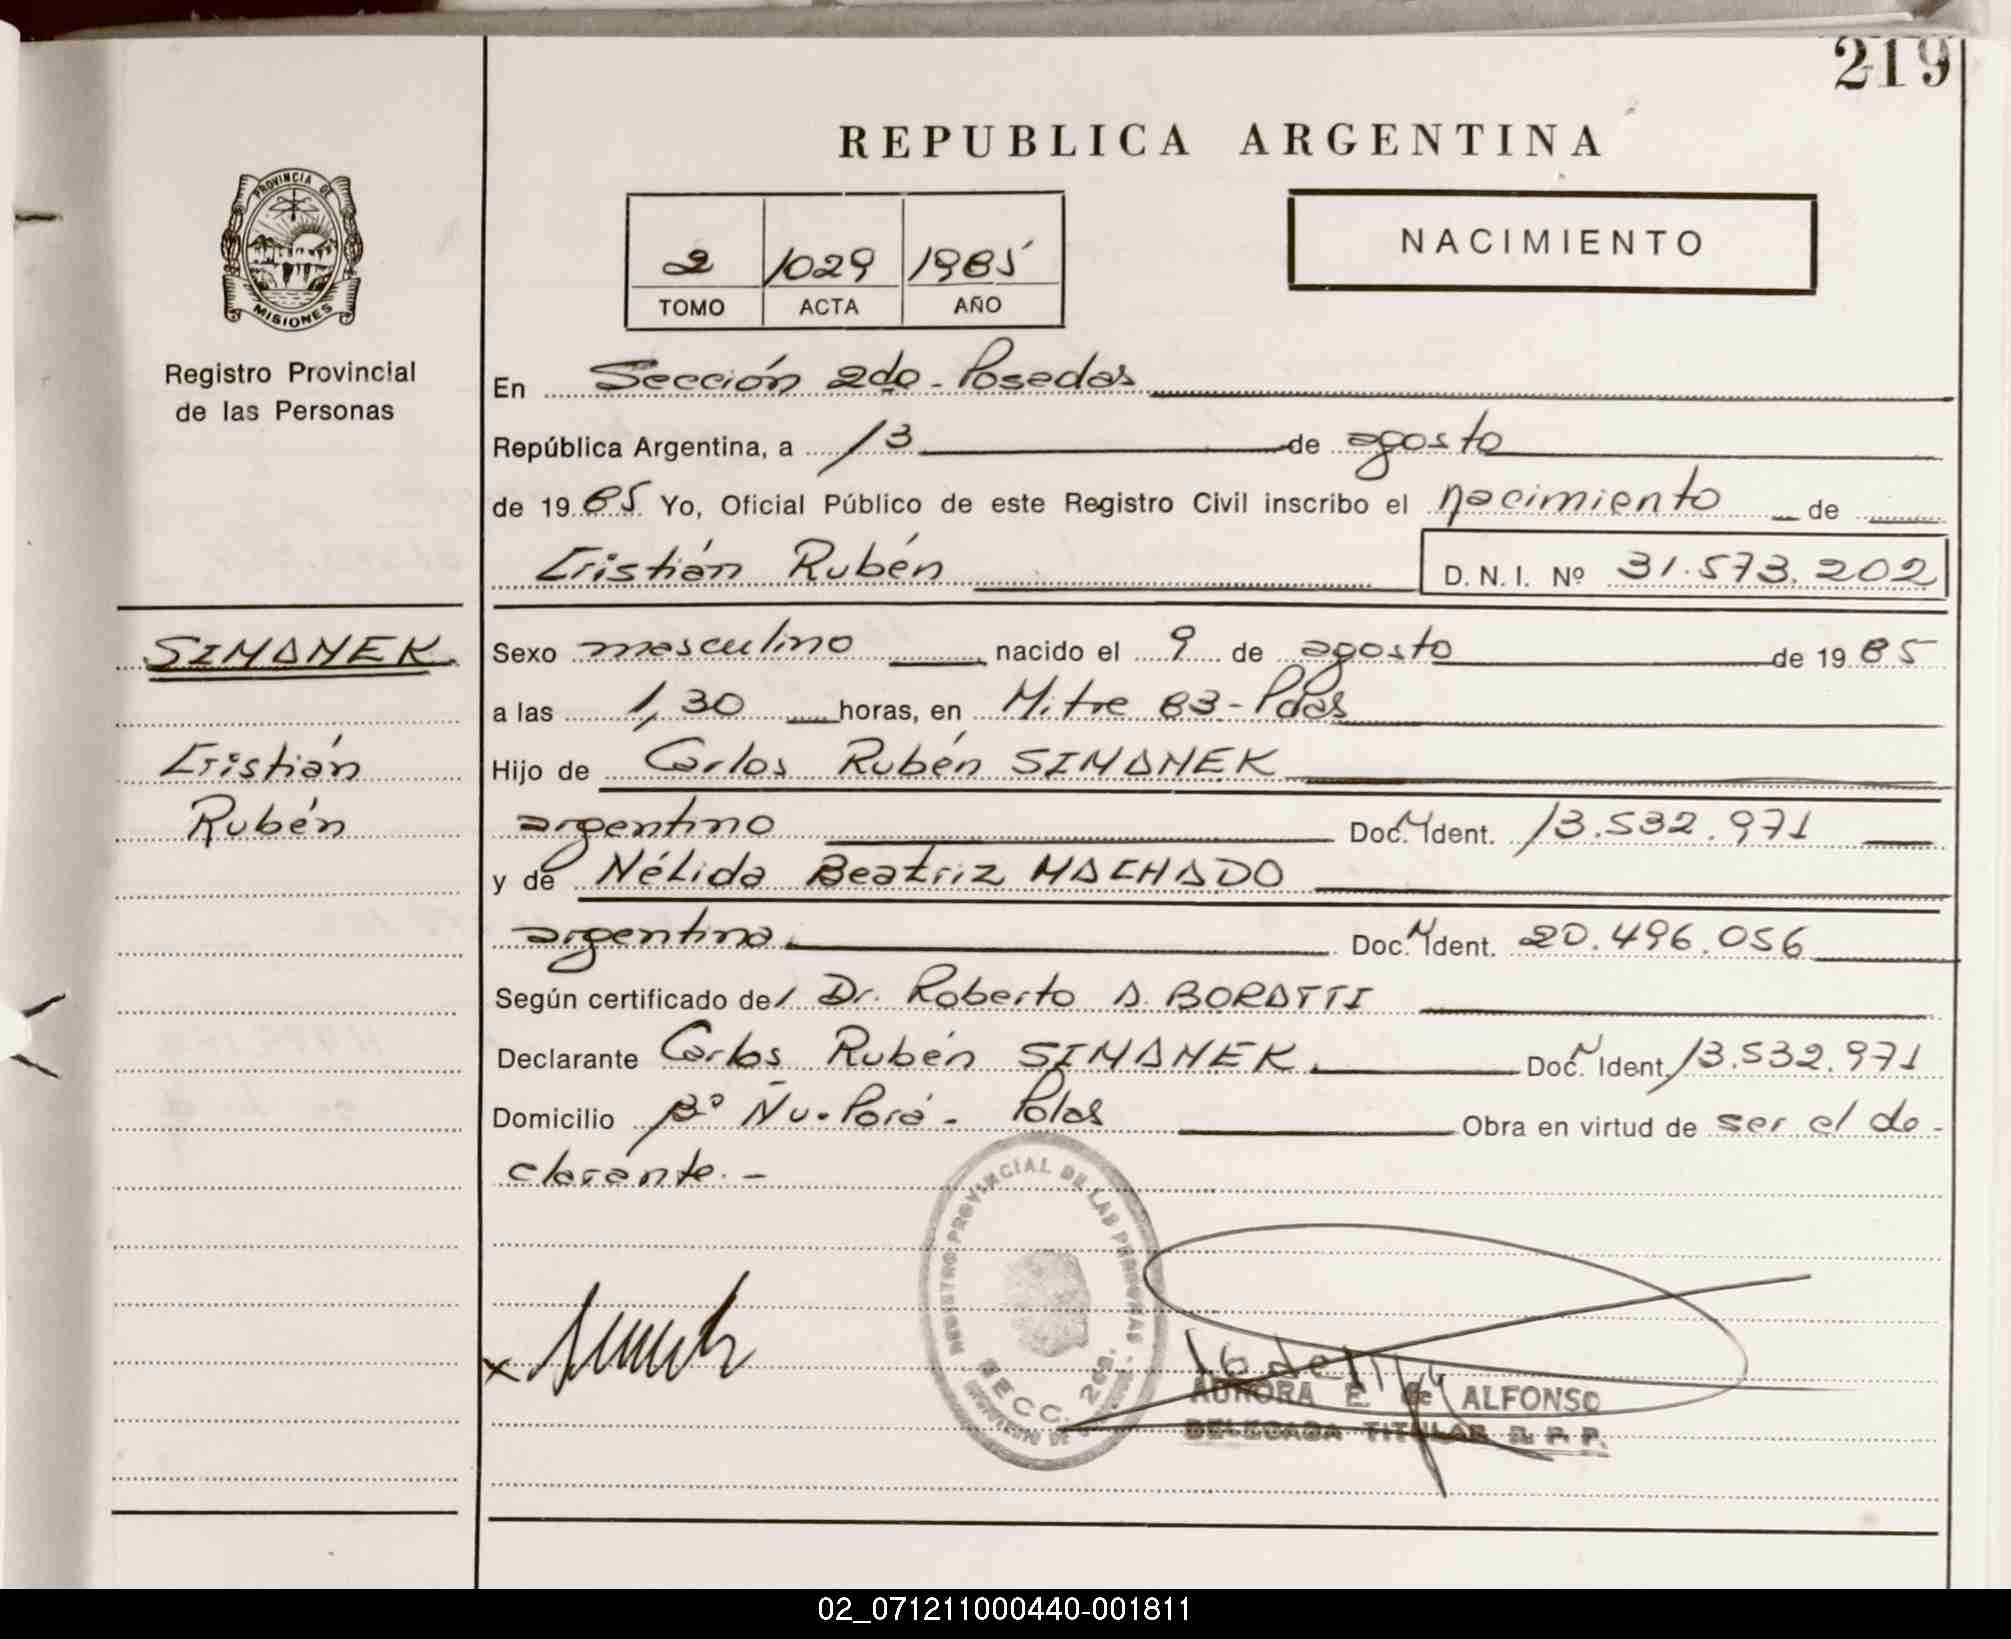 219
REPUBLICA ARGENTINA
PROVINCIA DE
MISIONES
Registro Provincial
de las Personas
2 1029 1985
TOMO ACTA AÑO
NACIMIENTO
En Sección 2da - Posadas
República Argentina, a 13 de agosto
de 1985 Yo, Oficial Público de este Registro Civil inscribo el nacimiento de
Cristián Rubén D. N. I. Nº 31.573.202
SIMANEK
Cristián
Rubén
Sexo masculino nacido el 9 de agosto de 1985
a las 1,30 horas, en Mitre 83 - Pdas
Hijo de Carlos Rubén SIMANEK
argentino Doc. N Ident. 13.532.971
y de Nélida Beatriz MACHADO
argentina Doc. N Ident. 20.496.056
Según certificado del Dr. Roberto A. BORATTI
Declarante Carlos Rubén SIMANEK Doc. N Ident. 13.532.971
Domicilio Bº Ñu-Porá - Pdas Obra en virtud de ser el de-
clarante. -
REGISTRO PROVINCIAL DE LAS PERSONAS
SECC. 2da.
AURORA E. de ALFONSO
DELEGADA TITULAR R. P. P.
02_071211000440-001811